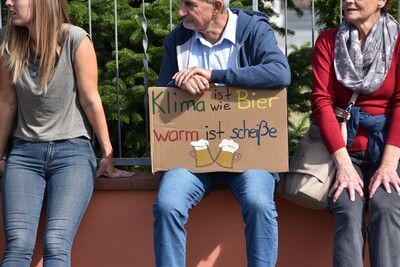 Klima ist wie Bier
warm ist scheiße